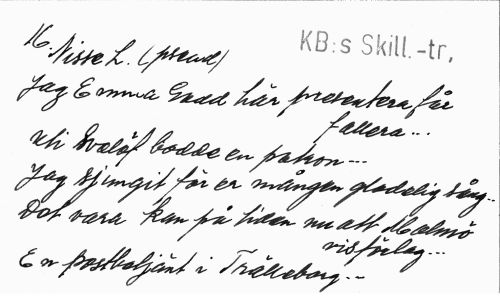 N. Nisse L. (pseud)
KB:s Skill.-tr.
Jag Emma Gadd här presentera får
fallera...
Uti Svalöf bodde en patron---
Jag sjungit för er mången gladelig sång..
Det vara kan på tiden nu att Malmö
vis förlag...
En postbetjänt i Trälleborg...